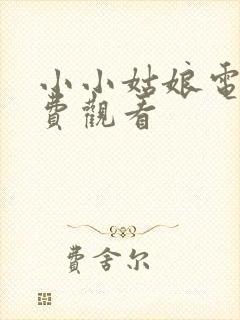 小小姑娘電
費觀看
費舍尔